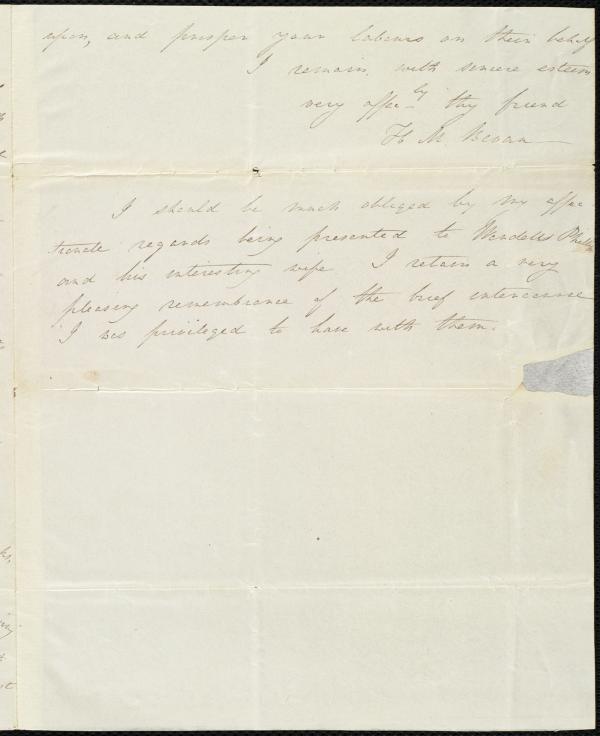 upon, and prosper your labours on their behalf
I remain, with sincere esteem
very affecly thy friend
H M Bevan
I should be much obliged by my affec
tionate regards being presented to Wendell Phillips
and his interesting wife I retain a very
pleasing remembrance of the brief intercourse
I was privileged to have with them.